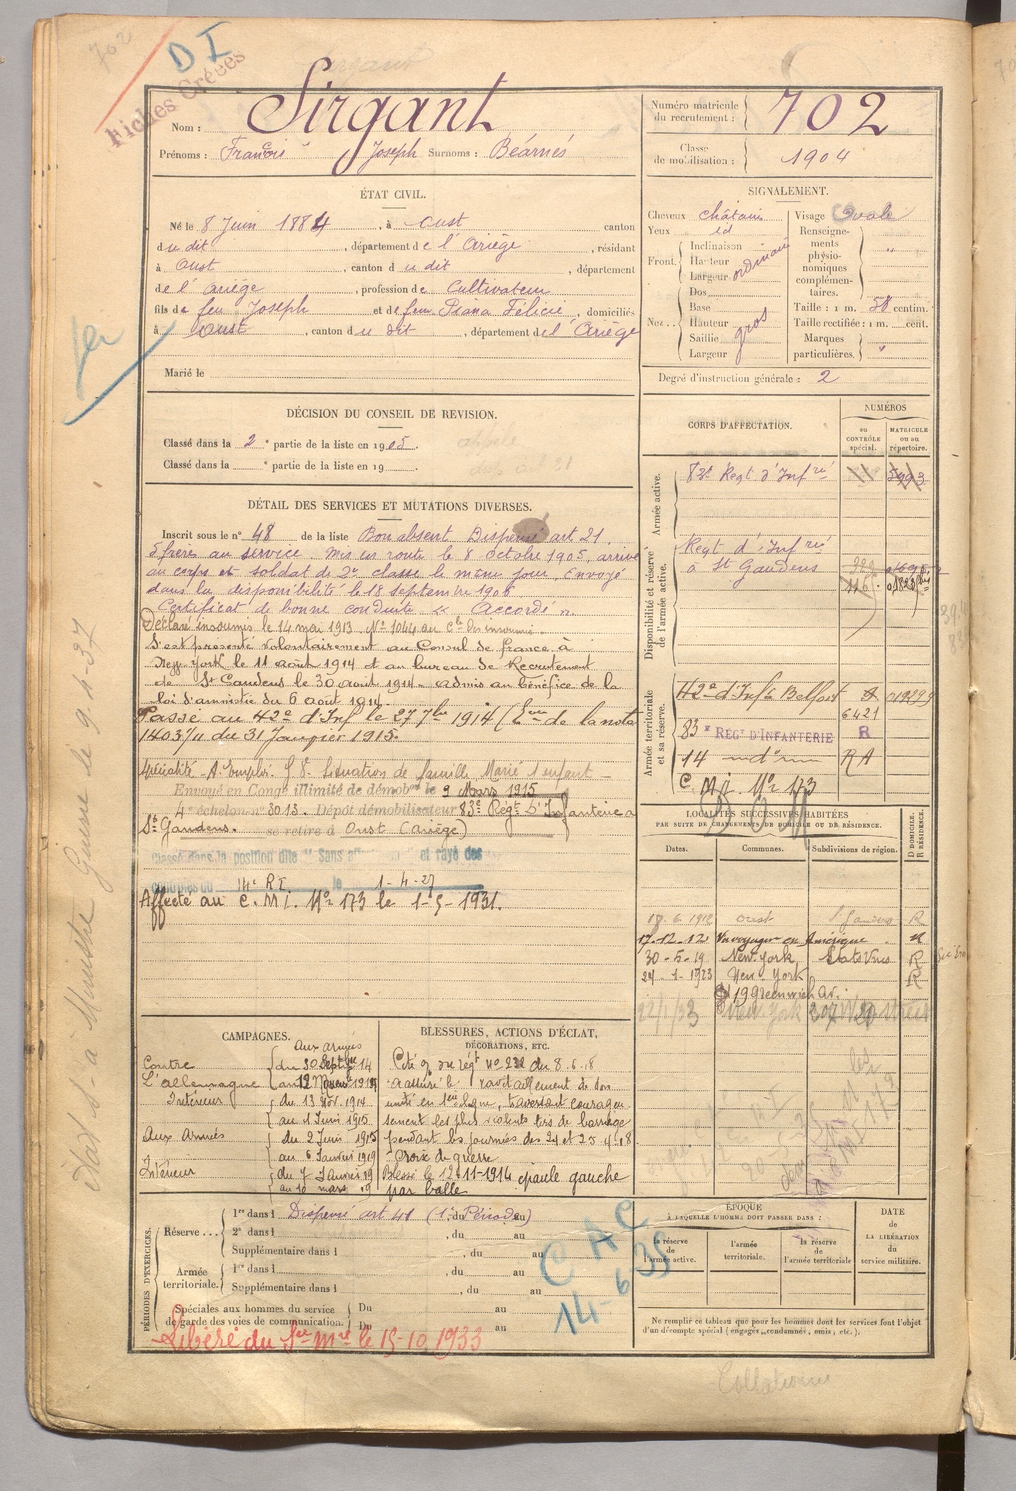 702
D I
Fiches Créées
Nom : Sirgant
Prénoms : François Joseph Surnoms : Béarnés
Numéro matricule du recrutement : 702
Classe de mobilisation : 1904
ÉTAT CIVIL.
Né le 8 Juin 1884, à Oust canton
du dit, département de l'Ariège, résidant
à Oust, canton du dit, département
de l'Ariège, profession de Cultivateur
fils de feu Joseph et de feue Piana Félicie, domiciliés
à Oust, canton du dit, département de l'Ariège
Marié le
SIGNALEMENT.
Cheveux châtain
Yeux id
Front. Inclinaison
Hauteur
Largeur ordinaire
Nez... Dos
Base
Hauteur
Saillie gros
Largeur
Visage Ovale
Renseignements physionomiques complémentaires. "
Taille : 1 m. 58 centim.
Taille rectifiée : 1 m. cent.
Marques particulières. "
Degré d'instruction générale : 2
DÉCISION DU CONSEIL DE REVISION.
Classé dans la 2e partie de la liste en 1905.
Classé dans la e partie de la liste en 19
DÉTAIL DES SERVICES ET MUTATIONS DIVERSES.
Inscrit sous le n° 48 de la liste Bon absent Dispensé art 21.
frères au service. Mis en route le 8 octobre 1905, arrivé
au corps et soldat de 2e classe le même jour. Envoyé
dans la disponibilité le 18 septembre 1906
Certificat de bonne conduite "Accordé".
Déclaré insoumis le 14 mai 1913. N° 1044 au Cle des insoumis.
S'est présenté volontairement au Consul de france à
New York le 11 août 1914 et au bureau de Recrutement
de St Gaudens le 30 août 1914 - admis au bénéfice de la
loi d'amnistie du 6 août 1914.
Passé au 42e d'Inf le 27 7bre 1914 ( de la note
1403/11 du 31 Janvier 1915.
Spécialité - A. Emploi. Situation de famille Marié 1 enfant -
Envoyé en Congé illimité de démobon le 9 Mars 1915
4e échelon n° 3013. Dépôt démobilisateur 83e Régt D'Infanterie a
St Gaudens. se retire à Oust (Ariège)
Classé dans la position dite "Sans affectation" et rayé des
14e R.I. le 1-4-27
Affecté au C.M.I. N° 173 le 1-5-1931.
CORPS D'AFFECTATION.
NUMÉROS
au CONTRÔLE spécial.
MATRICULE ou au répertoire.
Armée active.
83e Regt d'Infrie 5993
Disponibilité et réserve de l'armée active.
Regt d'Infrie
à St Gaudens
Armée territoriale et sa réserve.
42e d'Infie Belfort
6421
83e RÉGT D'INFANTERIE R
14 — do — RA
C.M.I. N° 173
LOCALITÉS SUCCESSIVES HABITÉES
PAR SUITE DE CHANGEMENTS DE DOMICILE OU DE RÉSIDENCE.
Dates. Communes. Subdivisions de région. D DOMICILE. R RÉSIDENCE.
18.6.1912 Oust St Gaudens R
17-12-12 Va voyager en Amérique
30-5-19 New York Etats Unis R
24-1-1923 New York R
19 Greenwich Av.
22/1/33 New York
CAMPAGNES.
Aux armées
Contre du 30 Septbre 14
L'allemagne au 12 Novembre 1914
Intérieur du 13 Nov. 1914
au 1 Juin 1915
Aux Armées du 2 Juin 1915
au 6 Janvier 1919
Intérieur du 7 Janvier 19
au 10 mars 19
BLESSURES, ACTIONS D'ÉCLAT,
DÉCORATIONS, ETC.
Cité O. du régt n° 232 du 8.6.18
a assuré le ravitaillement de son
unité en 1ere ligne, traversant courageu
sement les plus violents tirs de barrage
pendant les journées des 24 et 25 4 18
Croix de guerre
Blessé le 12-11-1914 épaule gauche
par balle
PÉRIODES D'EXERCICES.
Réserve... 1re dans l Dispensé art 41 (1, du Période au)
2e dans l, du au
Supplémentaire dans l, du au
Armée territoriale. 1re dans l, du au
Supplémentaire dans l, du au
Spéciales aux hommes du service de garde des voies de communication. Du au
Du au
Libéré du Sce Mre le 15-10-1933
C A C
14-6-35
ÉPOQUE
A LAQUELLE L'HOMME DOIT PASSER DANS :
la réserve de l'armée active.
l'armée territoriale.
la réserve de l'armée territoriale
DATE de LA LIBÉRATION du service militaire.
Ne remplir ce tableau que pour les hommes dont les services font l'objet
d'un décompte spécial (engagés, condamnés, omis, etc.).
Collationné